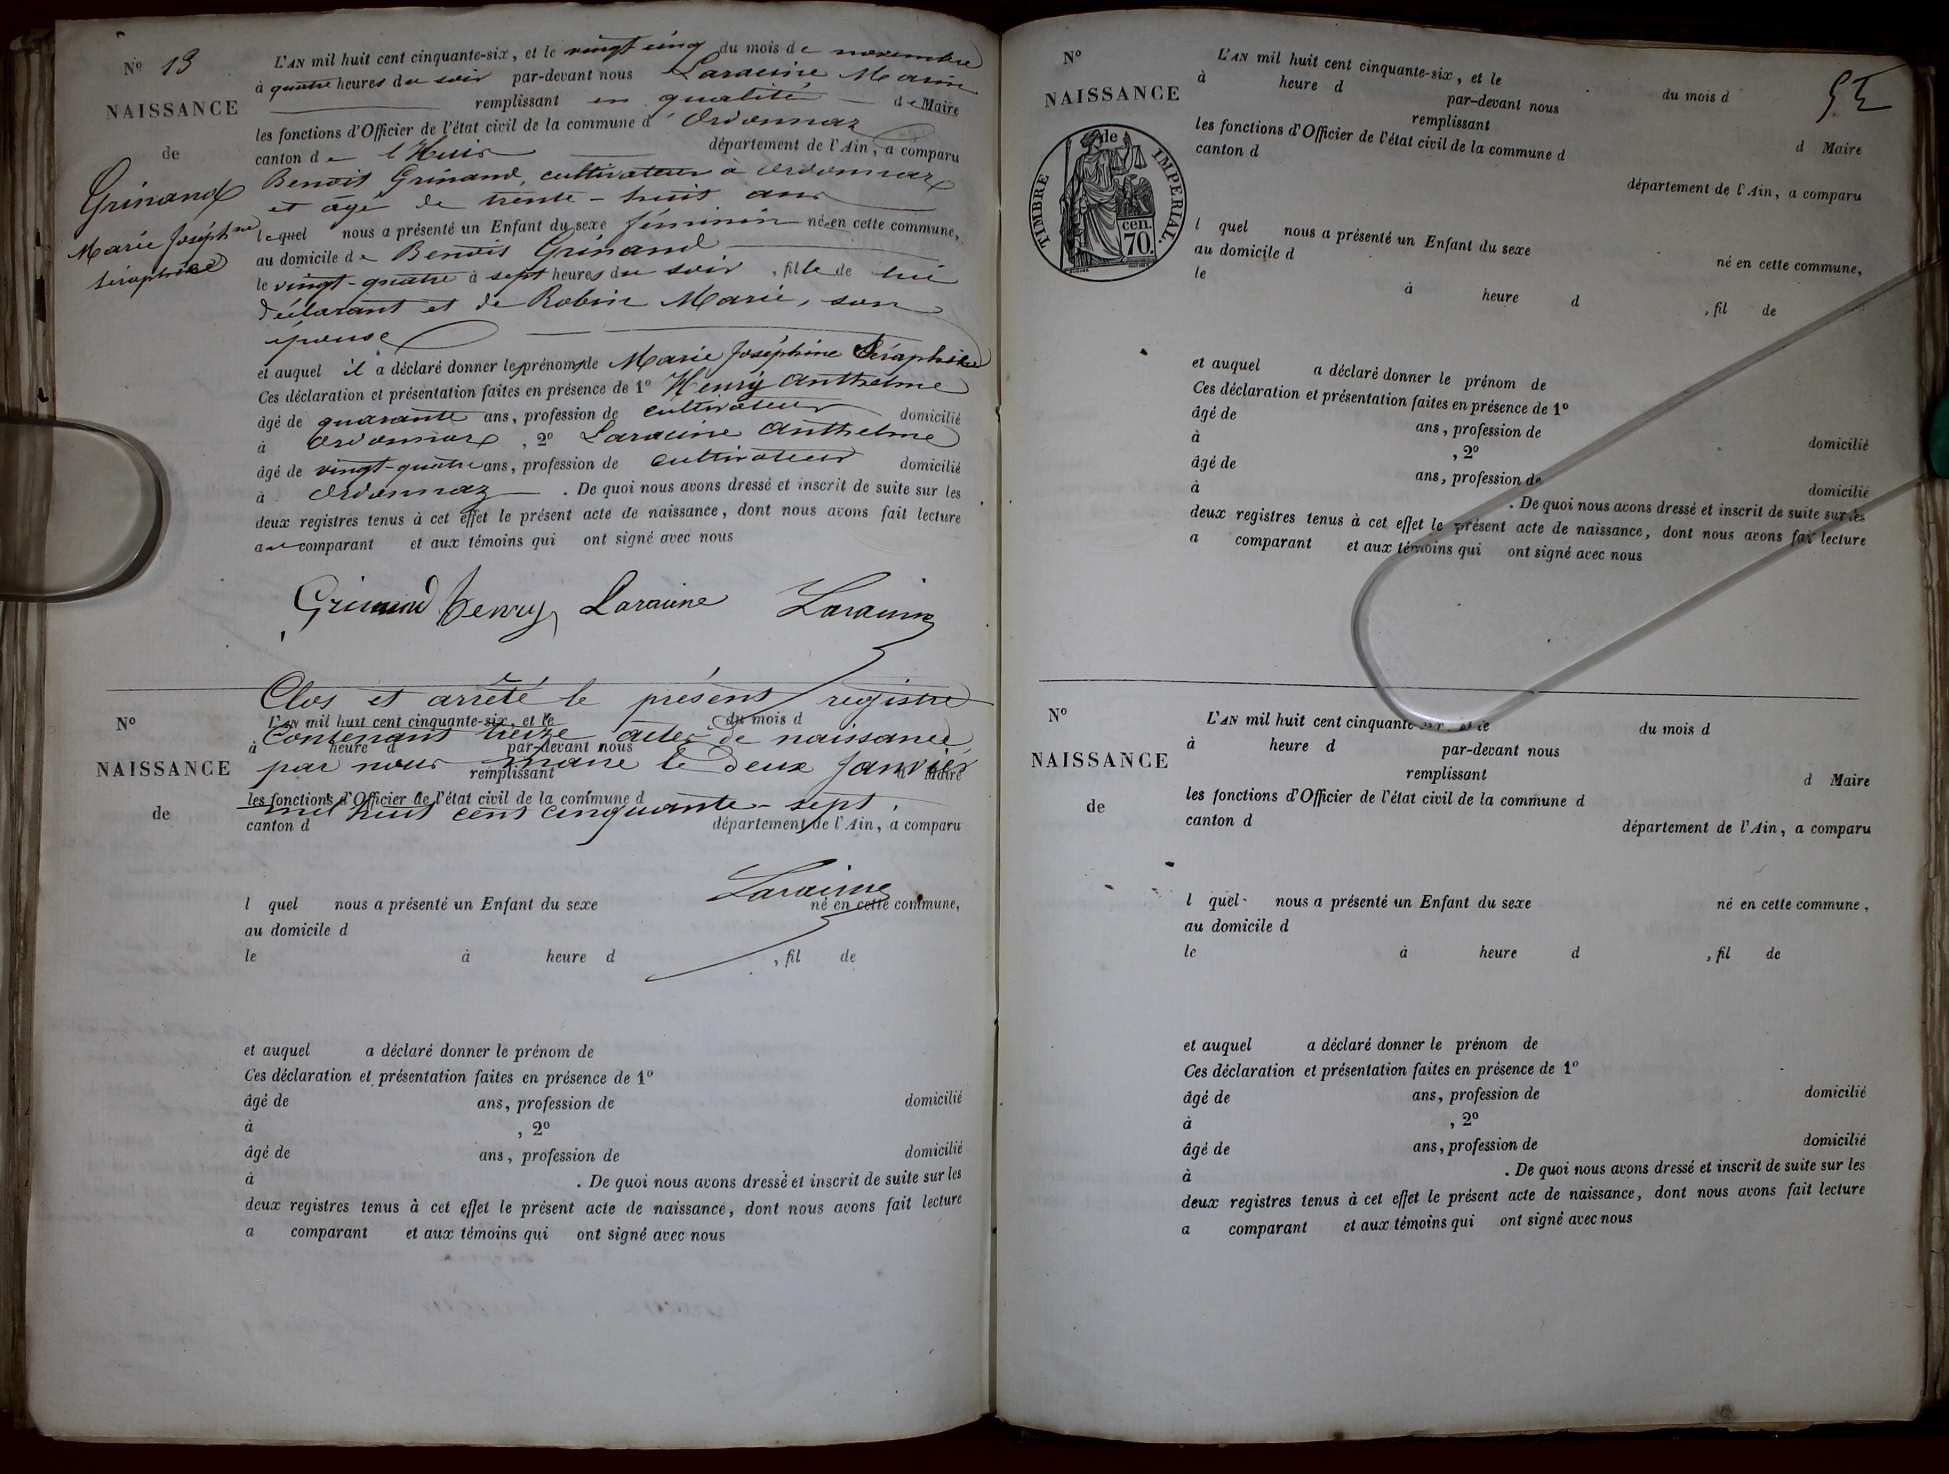 N° 13
NAISSANCE
de
Grinand
Marie Joséphine
Séraphine
L'AN mil huit cent cinquante-six, et le vingt cinq du mois de novembre
à quatre heures du soir par-devant nous Laracine Marin
remplissant en qualité de Maire
les fonctions d'Officier de l'état civil de la commune d' Ordonnaz
canton de l'Huis département de l'Ain, a comparu
Benoit Grinand, cultivateur à Ordonnaz
et âgé de trente-huit ans
lequel nous a présenté un Enfant du sexe féminin né en cette commune,
au domicile de Benoit Grinand
le vingt-quatre à sept heures du soir, fille de lui
déclarant et de Robin Marie, son
épouse
et auquel il a déclaré donner les prénoms de Marie Joséphine Séraphine
Ces déclaration et présentation faites en présence de 1° Henry Anthelme
âgé de quarante ans, profession de cultivateur domicilié
à Ordonnaz, 2° Laracine Anthelme
âgé de vingt-quatre ans, profession de cultivateur domicilié
à Ordonnaz. De quoi nous avons dressé et inscrit de suite sur les
deux registres tenus à cet effet le présent acte de naissance, dont nous avons fait lecture
au comparant et aux témoins qui ont signé avec nous
Grinand Henry Laracine Laracine
Clos et arrêté le présent registre
N°
L'AN mil huit cent cinquante-six, et le du mois d
contenant treize actes de naissance,
à heure d par-devant nous
NAISSANCE
par nous maire le deux Janvier
remplissant d Maire
les fonctions d'Officier de l'état civil de la commune d
de
mil huit cent cinquante-sept.
canton d département de l'Ain, a comparu
Laracine
l quel nous a présenté un Enfant du sexe né en cette commune,
au domicile d
le à heure d , fil de
et auquel a déclaré donner le prénom de
Ces déclaration et présentation faites en présence de 1°
âgé de ans, profession de domicilié
à , 2°
âgé de ans, profession de domicilié
à . De quoi nous avons dressé et inscrit de suite sur les
deux registres tenus à cet effet le présent acte de naissance, dont nous avons fait lecture
a comparant et aux témoins qui ont signé avec nous
N°
NAISSANCE
de
TIMBRE IMPERIAL.
cen.
70.
L'AN mil huit cent cinquante-six, et le du mois d
à heure d par-devant nous
remplissant d Maire
les fonctions d'Officier de l'état civil de la commune d
canton d département de l'Ain, a comparu
l quel nous a présenté un Enfant du sexe né en cette commune,
au domicile d
le à heure d , fil de
et auquel a déclaré donner le prénom de
Ces déclaration et présentation faites en présence de 1°
âgé de ans, profession de domicilié
à , 2°
âgé de ans, profession de domicilié
à . De quoi nous avons dressé et inscrit de suite sur les
deux registres tenus à cet effet le présent acte de naissance, dont nous avons fait lecture
a comparant et aux témoins qui ont signé avec nous
N°
NAISSANCE
de
L'AN mil huit cent cinquante-six, et le du mois d
à heure d par-devant nous
remplissant d Maire
les fonctions d'Officier de l'état civil de la commune d
canton d département de l'Ain, a comparu
l quel nous a présenté un Enfant du sexe né en cette commune,
au domicile d
le à heure d , fil de
et auquel a déclaré donner le prénom de
Ces déclaration et présentation faites en présence de 1°
âgé de ans, profession de domicilié
à , 2°
âgé de ans, profession de domicilié
à . De quoi nous avons dressé et inscrit de suite sur les
deux registres tenus à cet effet le présent acte de naissance, dont nous avons fait lecture
a comparant et aux témoins qui ont signé avec nous